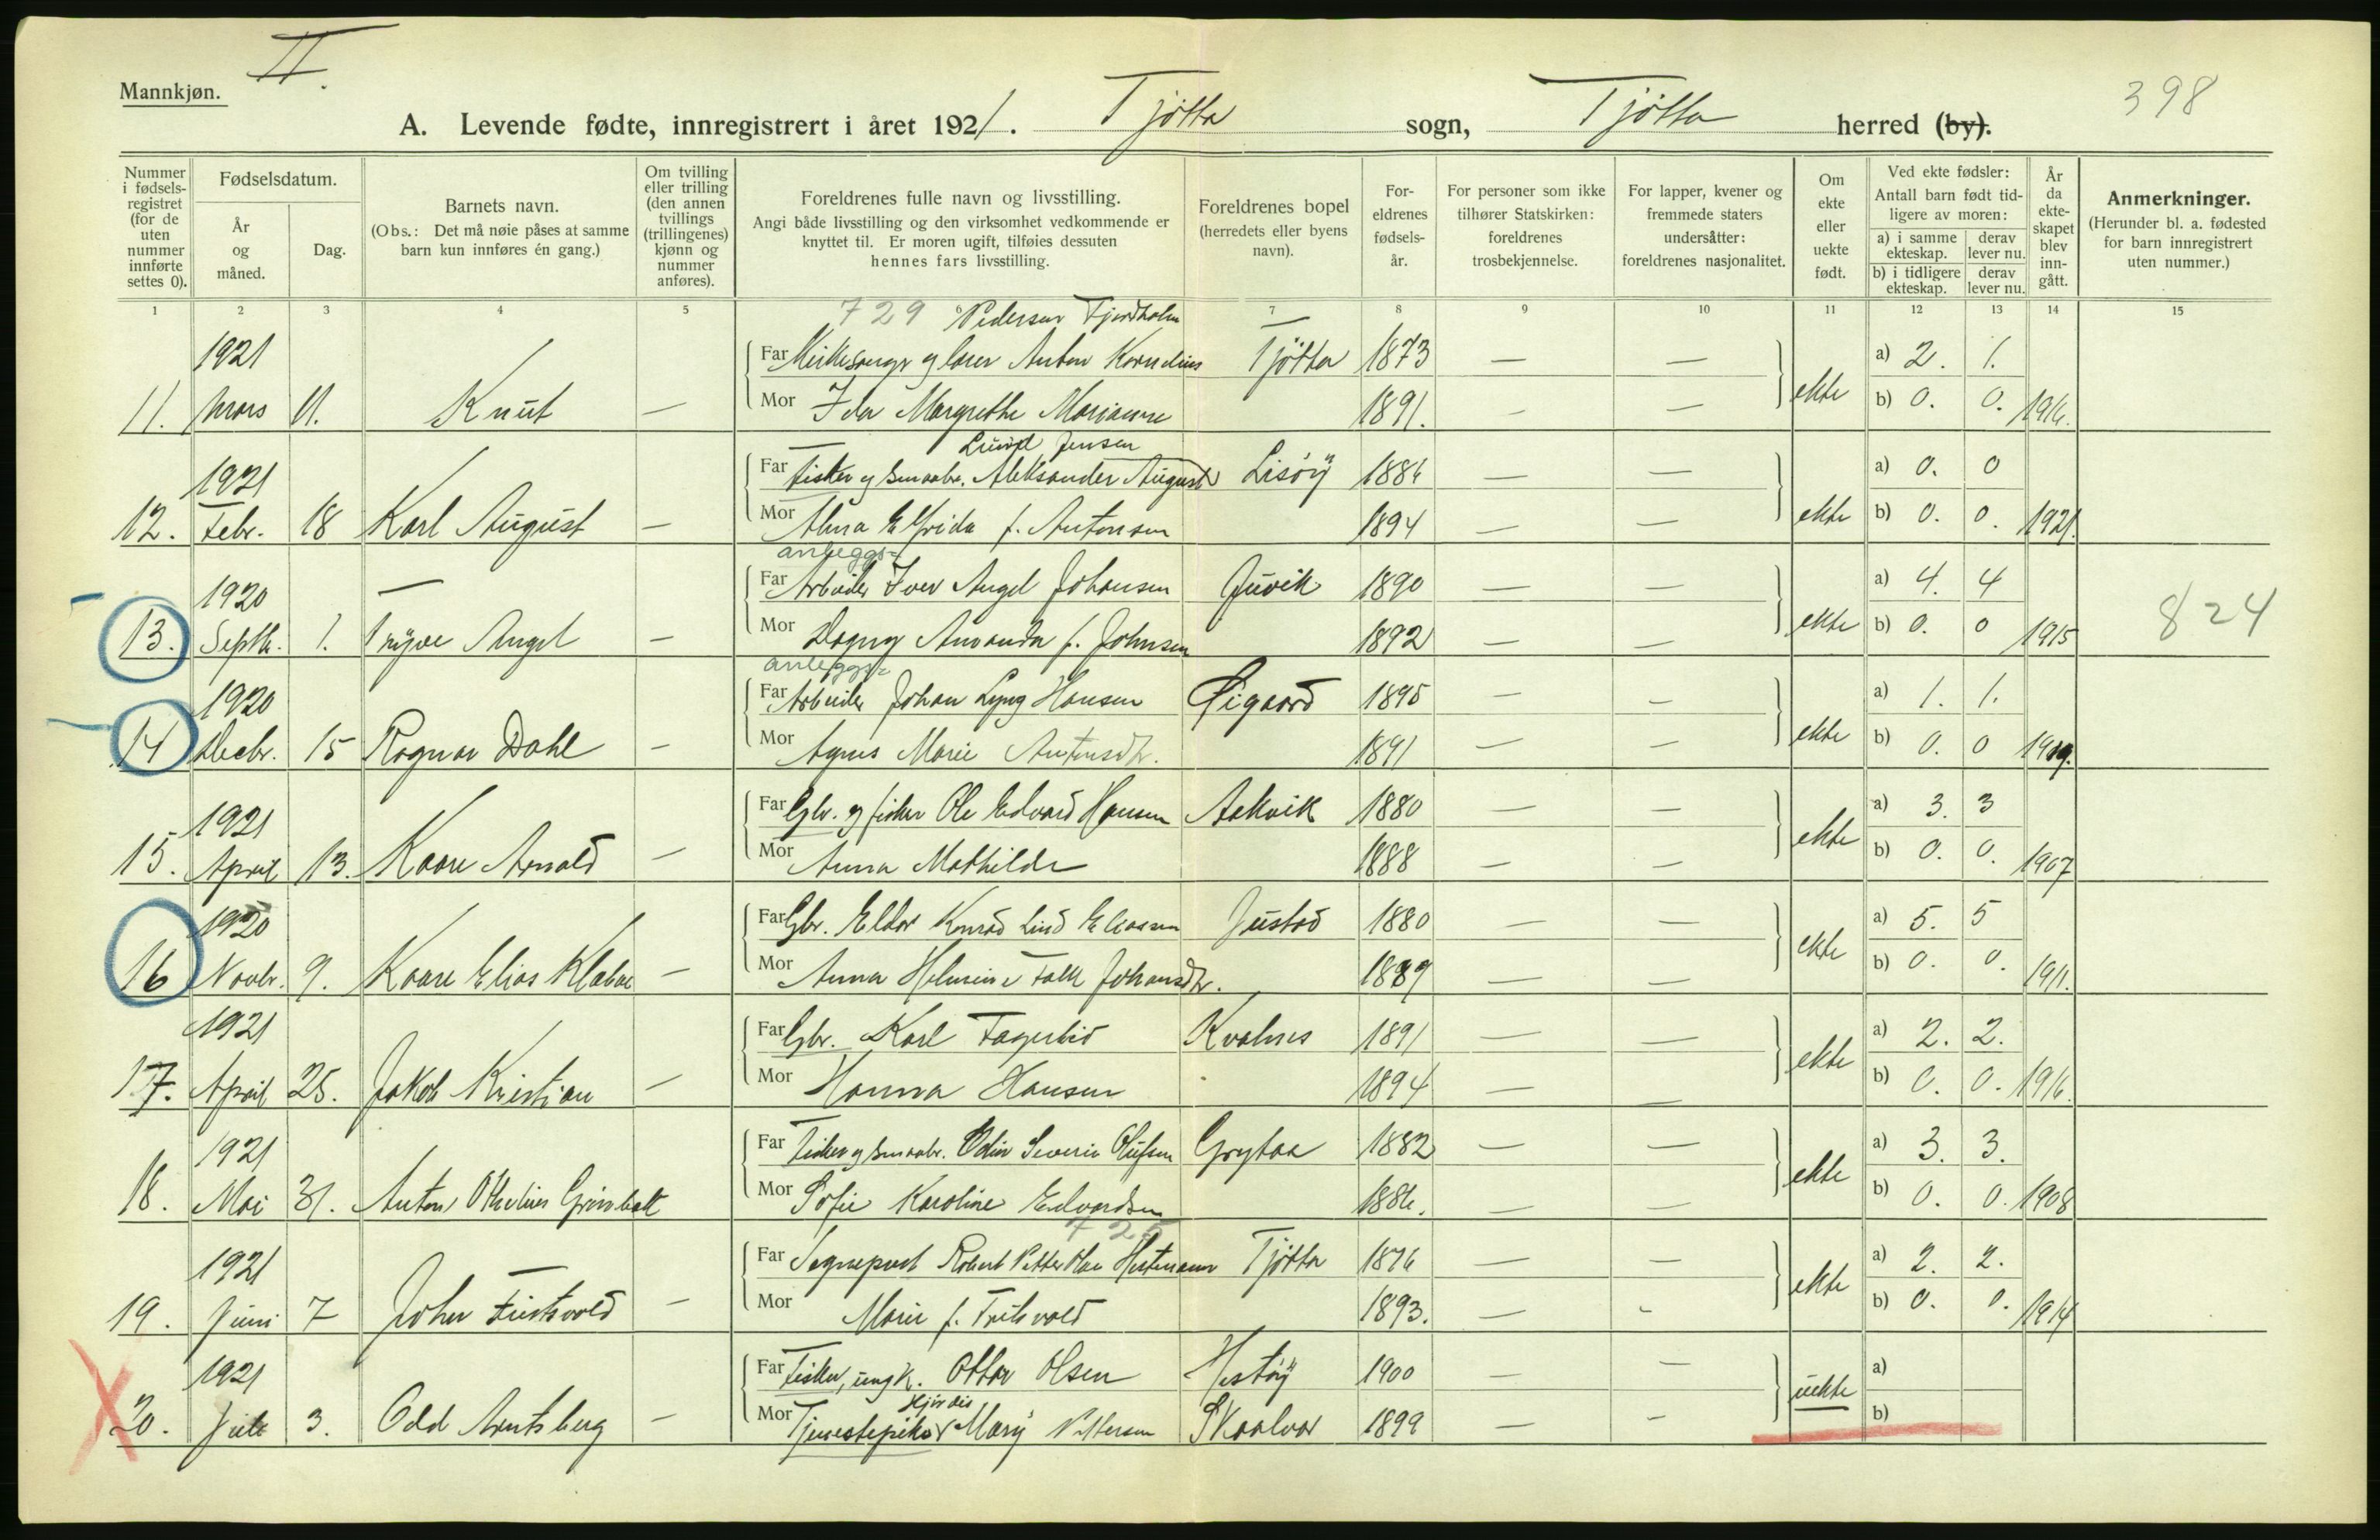 Mannkjøn.
II.
398
A. Levende fødte, innregistrert i året 1921. Tjötta sogn, Tjötta herred (by).
Nummer i fødsels-registret (for de uten nummer innførte settes 0).
Fødselsdatum.
År og måned.
Dag.
Barnets navn.
(Obs.: Det må nøie påses at samme barn kun innføres én gang.)
Om tvilling eller trilling (den annen tvillings (trillingenes) kjønn og nummer anføres).
Foreldrenes fulle navn og livsstilling.
Angi både livsstilling og den virksomhet vedkommende er knyttet til. Er moren ugift, tilføies dessuten hennes fars livsstilling.
Foreldrenes bopel (herredets eller byens navn).
For-eldrenes fødsels-år.
For personer som ikke tilhører Statskirken: foreldrenes trosbekjennelse.
For lapper, kvener og fremmede staters undersåtter: foreldrenes nasjonalitet.
Om ekte eller uekte født.
Ved ekte fødsler: Antall barn født tid-ligere av moren:
a) i samme ekteskap. derav lever nu.
b) i tidligere ekteskap. derav lever nu.
År da ekte-skapet blev inn-gått.
Anmerkninger.
(Herunder bl. a. fødested for barn innregistrert uten nummer.)
1 2 3 4 5 6 7 8 9 10 11 12 13 14 15
729 Pedersen Fjordholm
1921 Far Kirkesanger og lærer Anton Kornelius Tjötta 1873 — — a) 2. 1.
11. Mars 11. Knut — Mor Ida Margrethe Marianne 1891. — — ekte b) 0. 0. 1916.
Lund Jensen
1921 Far Fisker og smaabr. Aleksander August Lisöy 1886 — — a) 0. 0
12. Febr. 18 Karl August — Mor Alma Elfrida f. Antonsen 1894 — — ekte b) 0. 0. 1921.
anleggs=
1920 Far Arbeider Iver Angel Johansen Juvik 1890 — — a) 4. 4
13. Septb. 1. Trygve Angel — Mor Dagny Amanda f. Johnsen 1892 — — ekte b) 0. 0 1915 824
anleggs=
1920 Far Arbeider Johan Lyng Hansen Øigaard 1895 — — a) 1. 1.
14 Decbr. 15 Ragnar Dahl — Mor Agnes Marie Antonsdtr. 1891 — — ekte b) 0. 0 1919.
1921 Far Gbr. og fisker Ole Edvard Hansen Aakvik 1880 — — a) 3. 3
15. April 13. Kaare Arnold — Mor Anna Mathilde 1888 — — ekte b) 0. 0. 1907
1920 Far Gbr. Eldor Konrad Lind Eliassen Justad 1880 — — a) 5. 5
16 Novbr. 9. Kaare Elias Klabae — Mor Anna Helmine Falk Johansdtr. 1889 — — ekte b) 0. 0. 1911.
1921 Far Gbr. Karl Fagerlid Kvalnes 1891 — — a) 2. 2.
17. April 25. Jakob Kristian — Mor Hanna Hansen 1894 — — ekte b) 0. 0. 1916.
1921 Far Fisker og smaabr. Odin Severin Olufsen Grytaa 1882 — — a) 3. 3.
18. Mai 31. Anton Othelius — Mor Sofie Karoline Edvardsen 1886. — — ekte b) 0. 0. 1908
725
1921 Far Sogneprest Robert Petter Hestmann Tjötta 1876 — — a) 2. 2.
19. Juni 7 Johan Fritsvold — Mor Marie f. Fritsvold 1893. — — ekte b) 0. 0. 1914
1921 Far Fisker, ungk. Ottar Olsen Hestöy 1900 — — a)
Hjördis
20. Juli 3. Odd Arntsberg — Mor Tjenestepike Mary Pettersen Skaalvær 1899 — — uekte b)